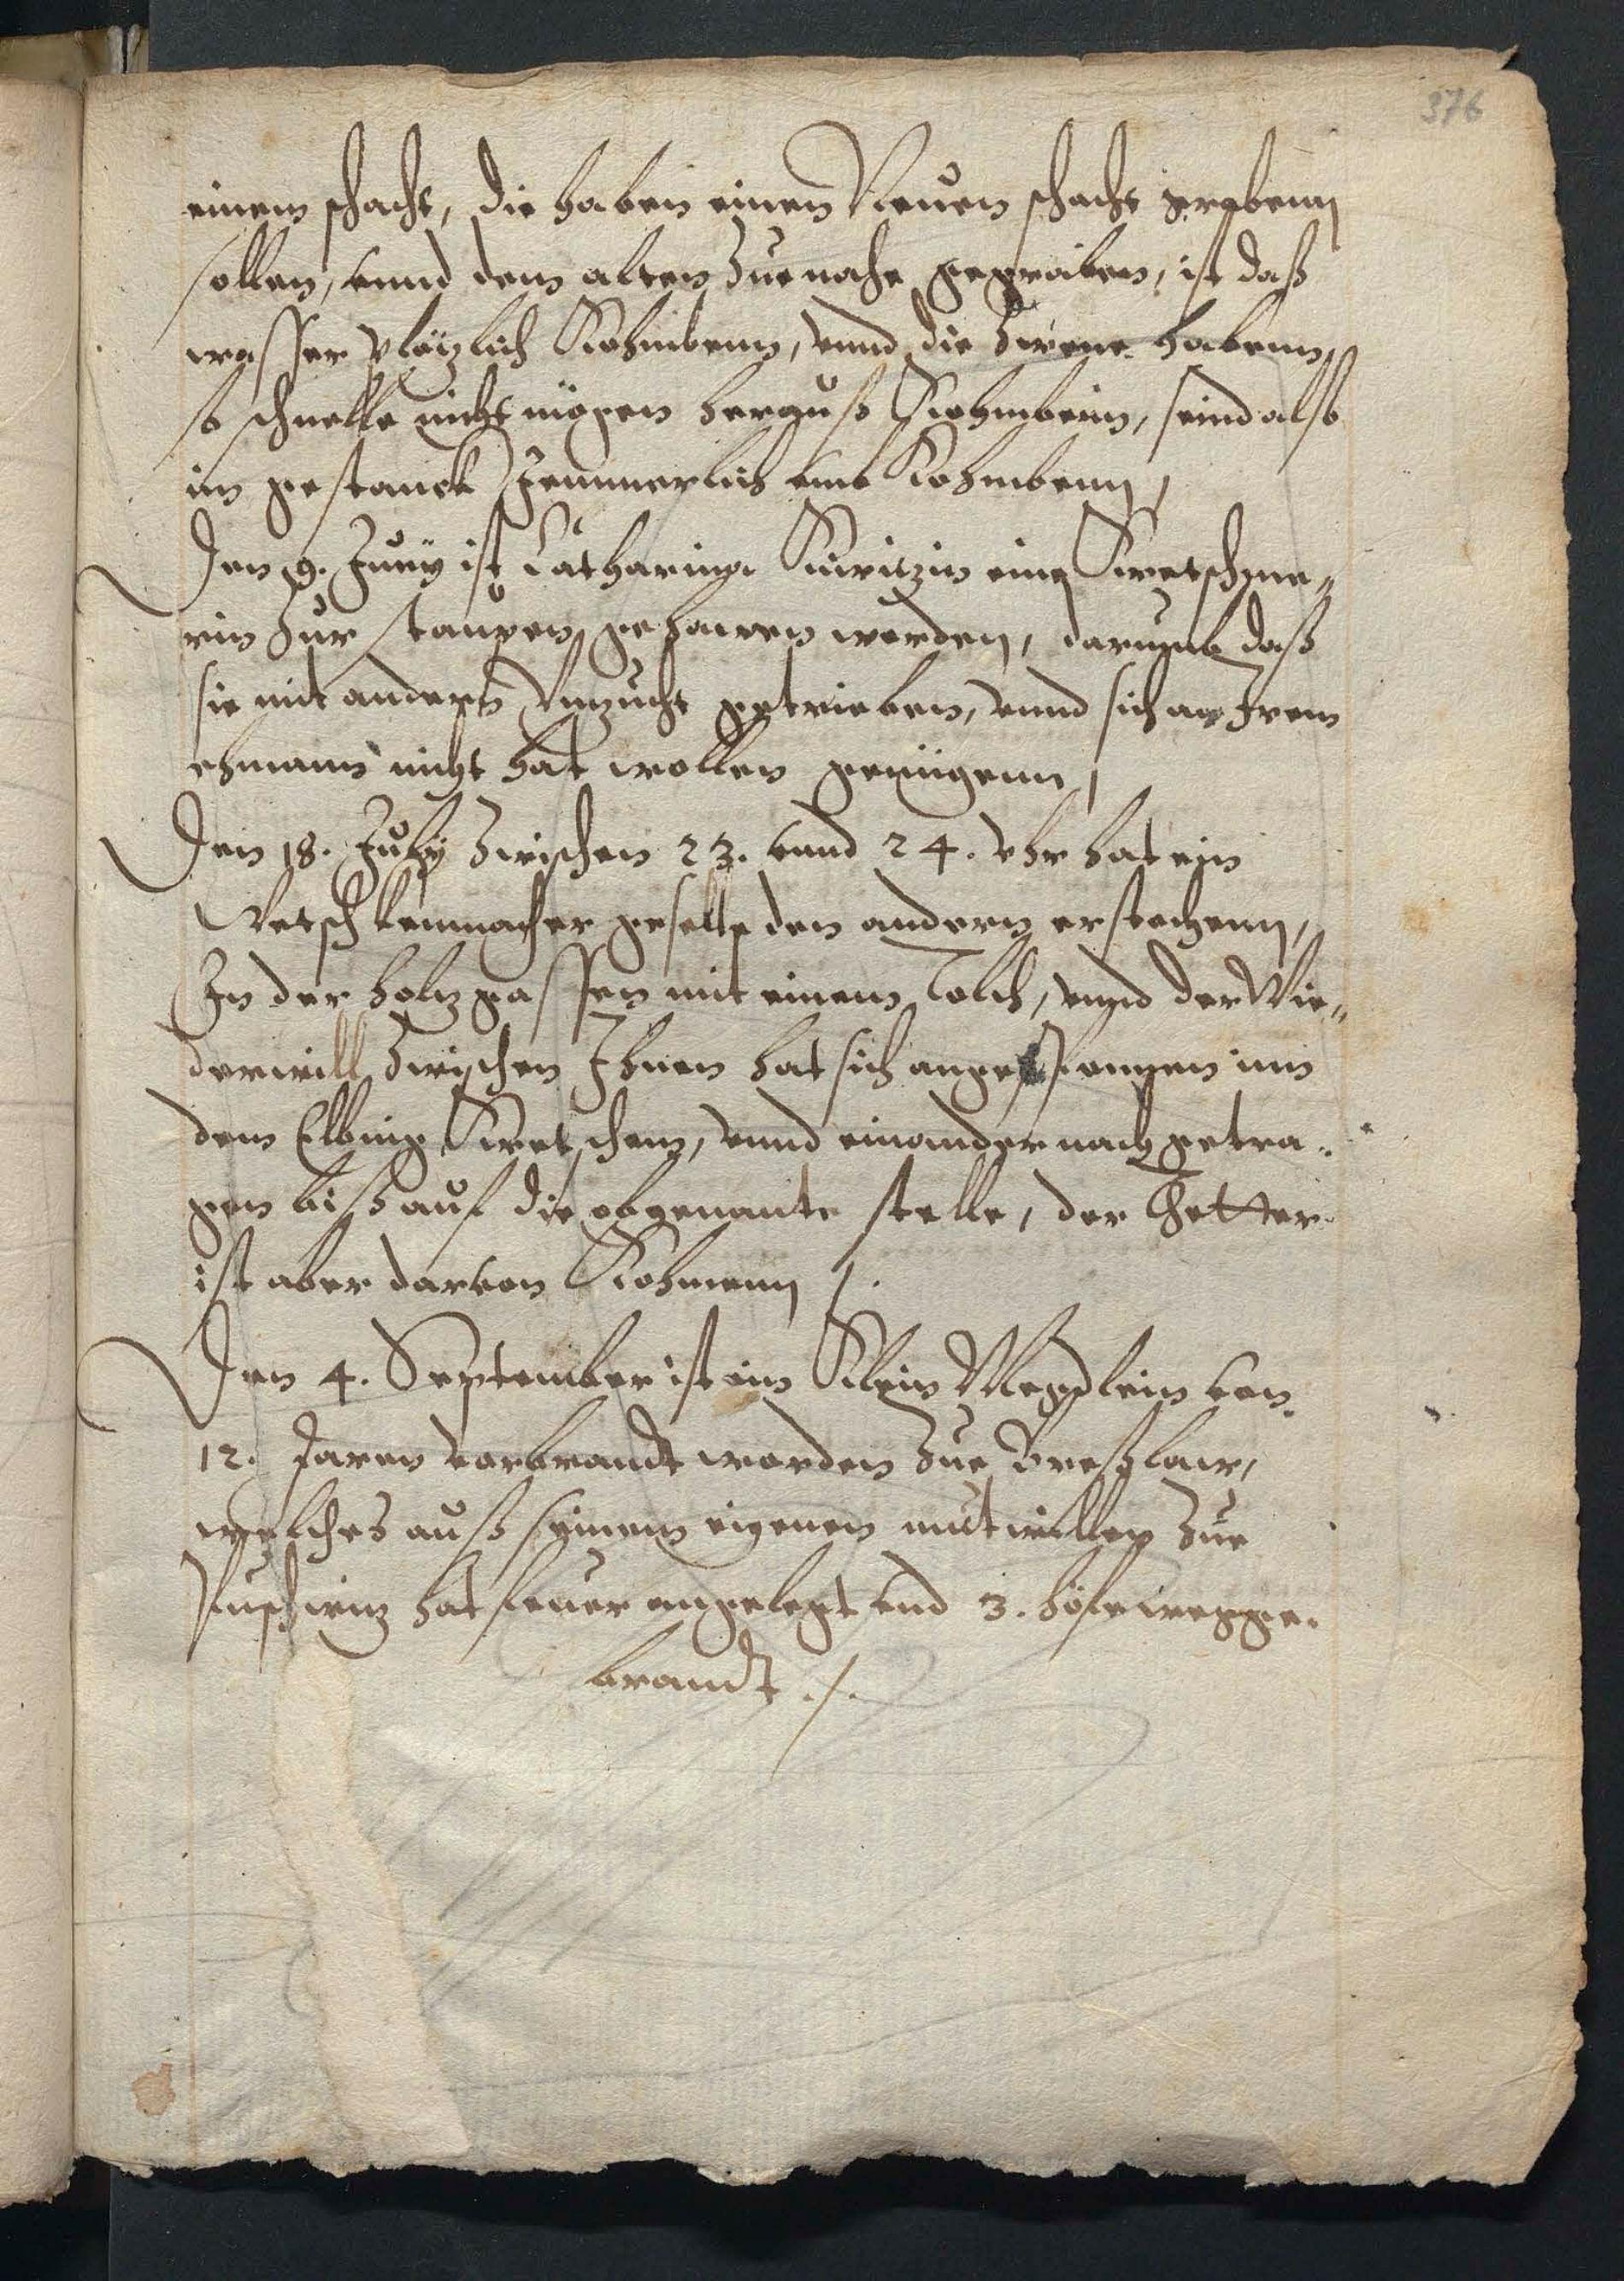 376
einem schacht, die haben einen Neuen schacht grabenn
sollen, vnnd dem alten zue nahe gegraben, ist daß
wasser plötzlich Kohmbenn, vnnd die zwene habenn,
so schnelle nicht mögen herauß Kohmbenn, seind also
im gestanck Jemmerlich vmb Kohmbenn /
Den 9. Juny ist Catharina eine Kretschme„
rin zur staupen gehawen worden, darumb daß
sie mit andern vnzucht getrieben, vnnd sich an Irem
ehmann nicht hat wollen genügenn /
Den 18. July zwischen 23. vnnd 24. vhr hat ein
Retschkenmacher geselle den andern erstochenn,
In der holzgassen mit einem Tolch, vnnd der Wie„
derwill zwischen Ihnen hat sich angespounen inn
dem Elbing Kretschem, vnnd einander nach getra„
gen biß auf die obgenante stelle, der Thetter
ist aber darvon Kohmenn /.
Den 4. September ist ein Klein Megdlein von
12. Jaren vorbrandt worden zue Breßlaw,
welches auß seinem eigenen mutwillen zue
hat feuer angelegt vnd 3. höfe wegge„
brandt ./.